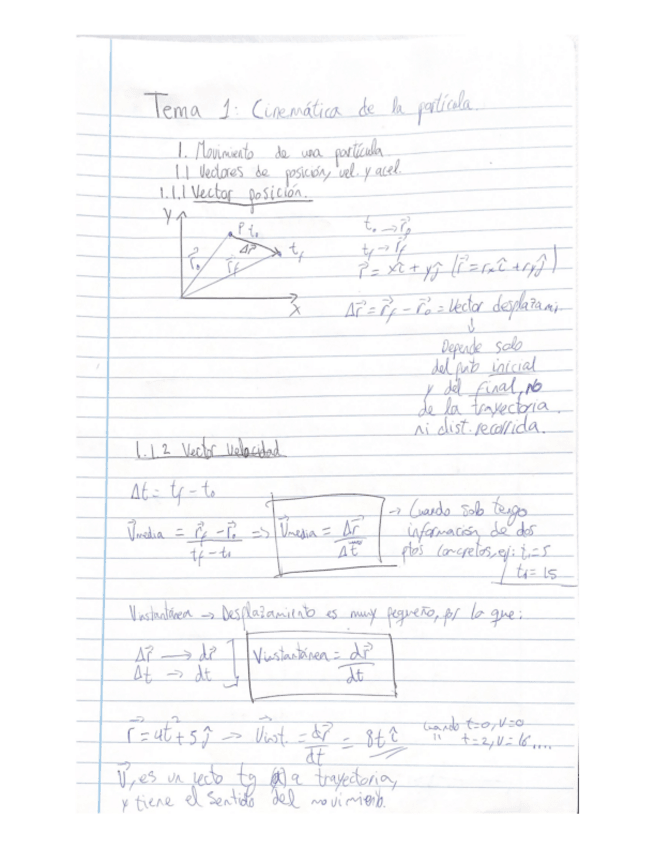 Tema 1: Cinemática de la partícula.
1. Movimiento de una partícula
1.1 Vectores de posición, vel. y acel.
1.1.1 Vector posición.
Y
P t₀
Δr⃗
t_f
r⃗₀
r⃗_f
X
t₀ → r⃗₀
t_f → r⃗_f
r⃗ = xî + yĵ (r⃗ = rₓî + r_yĵ)
Δr⃗ = r⃗_f - r⃗₀ = Vector desplazami.
↓
Depende solo
del pnto inicial
y del final, no
de la trayectoria
ni dist. recorrida.
1.1.2 Vector velocidad
Δt = t_f - t₀
V⃗media = r⃗_f - r⃗₀ / t_f - t₀ => V⃗media = Δr⃗ / Δt
→ Cuando solo tengo
información de dos
ptos concretos, ej: t₁=5
t₁= 15
Vinstantánea → Desplazamiento es muy pequeño, por lo que:
Δr⃗ → dr⃗
Δt → dt
Vinstantánea = dr⃗ / dt
r⃗ = 4t² + 5ĵ → V⃗inst. = dr⃗ / dt = 8tî
cuando t=0, v=0
" t=2, v=16....
V⃗, es un vecto tg a trayectoria,
y tiene el sentido del movimiento.